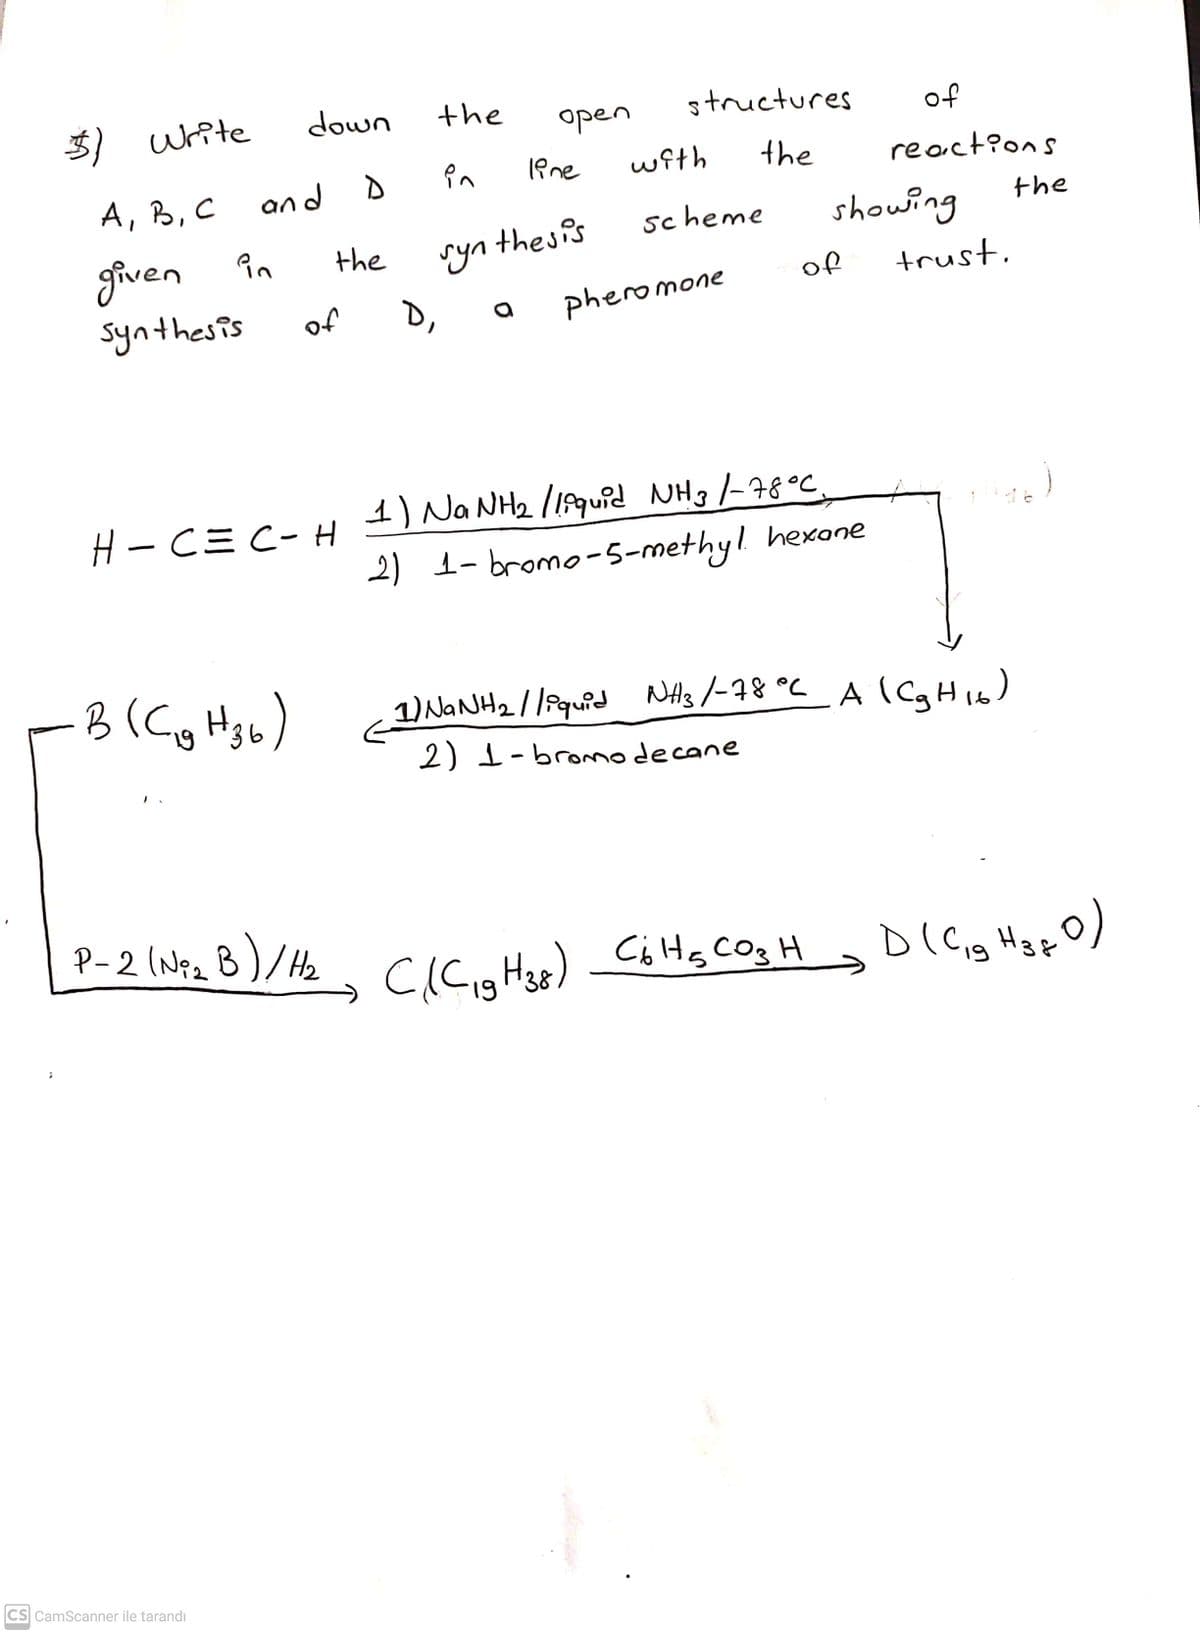 3) Write down the open structures of
A, B, C and D in line with the reactions
given in the synthesis scheme showing the
synthesis of D, a pheromone of trust.
H - C≡C - H 1) NaNH2 / liquid NH3 /-78°C
2) 1-bromo-5-methyl hexane
B (C19H36) 1) NaNH2 / liquid NH3 /-78 °C A (C9H16)
2) 1-bromodecane
P-2 (Ni2B) / H2 C (C19H38) C6H5CO3H D (C19H38O)
CS CamScanner ile tarandı